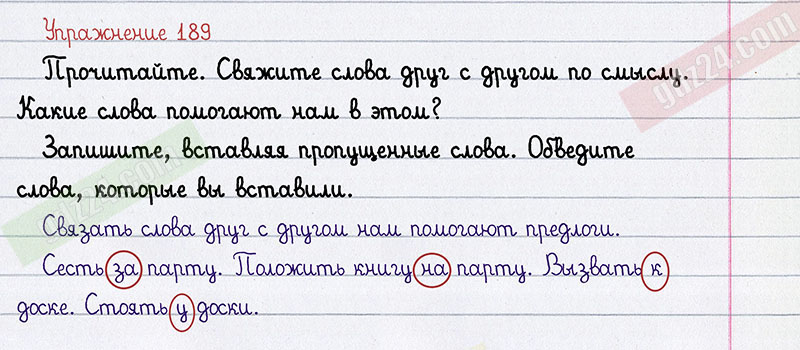 Упражнение 189
Прочитайте. Свяжите слова друг с другом по смыслу.
Какие слова помогают нам в этом?
Запишите, вставляя пропущенные слова. Обведите
слова, которые вы вставили.
Связать слова друг с другом нам помогают предлоги.
Сесть за парту. Положить книгу на парту. Вызвать к
доске. Стоять у доски.
gdz24.com
gdz24.com